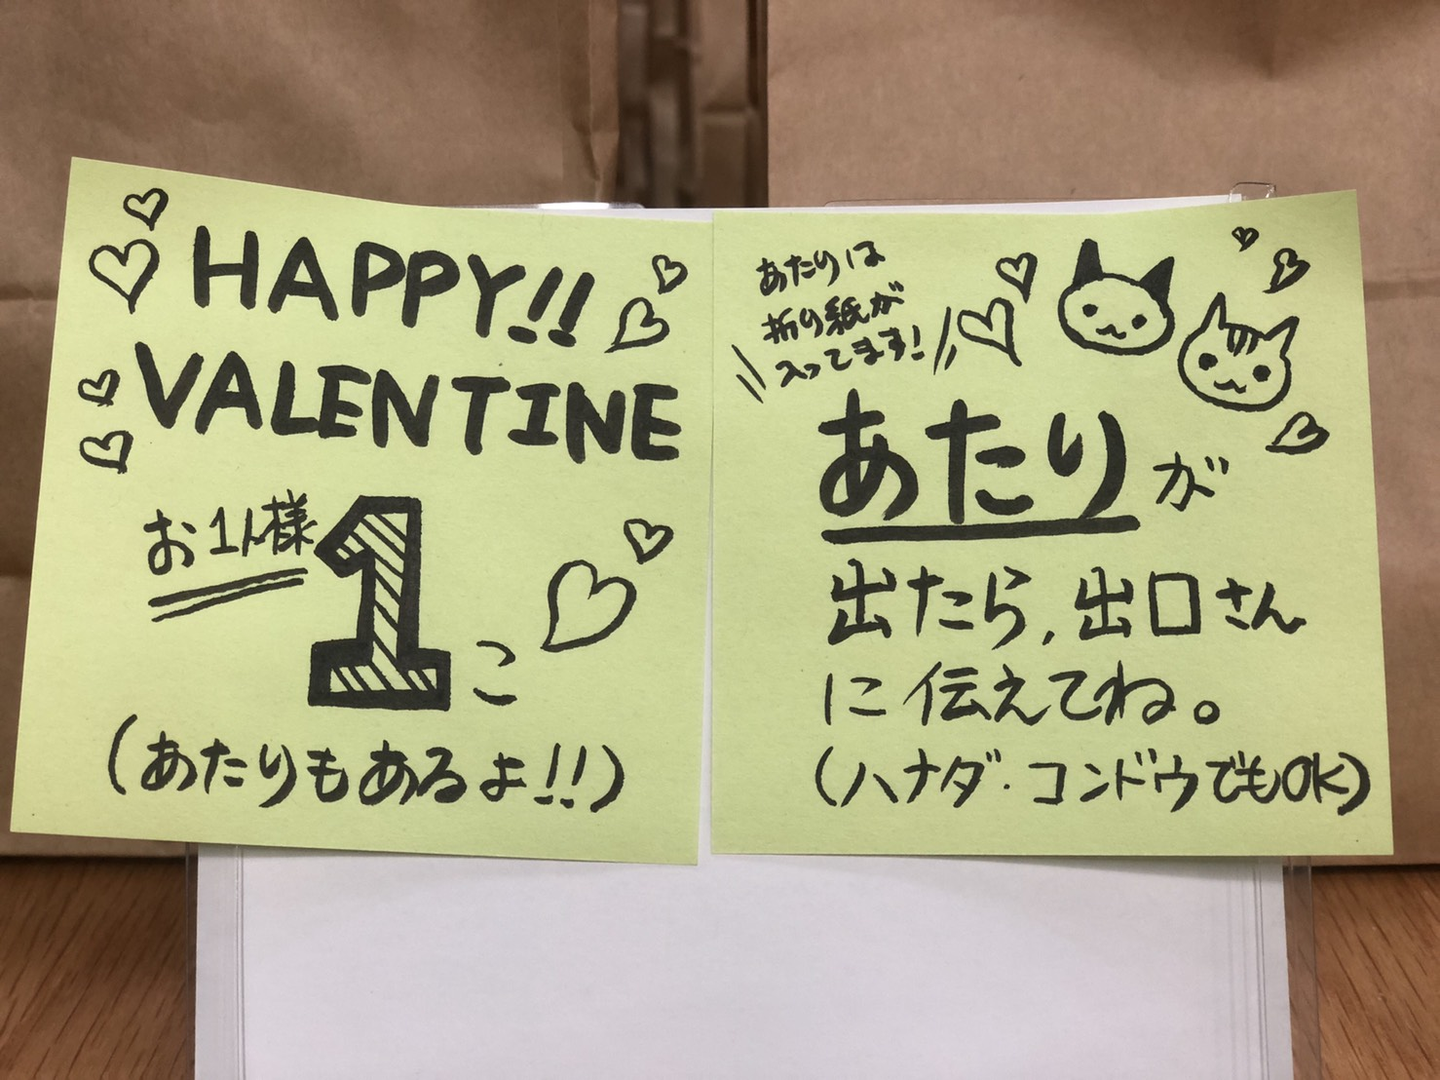 HAPPY!!
VALENTINE
お1人様
1こ
(あたりもあるよ!!)
あたりは
折り紙が
入ってます!
あたりが
出たら,出口さん
に伝えてね。
(ハナダ・コンドウでもOK)